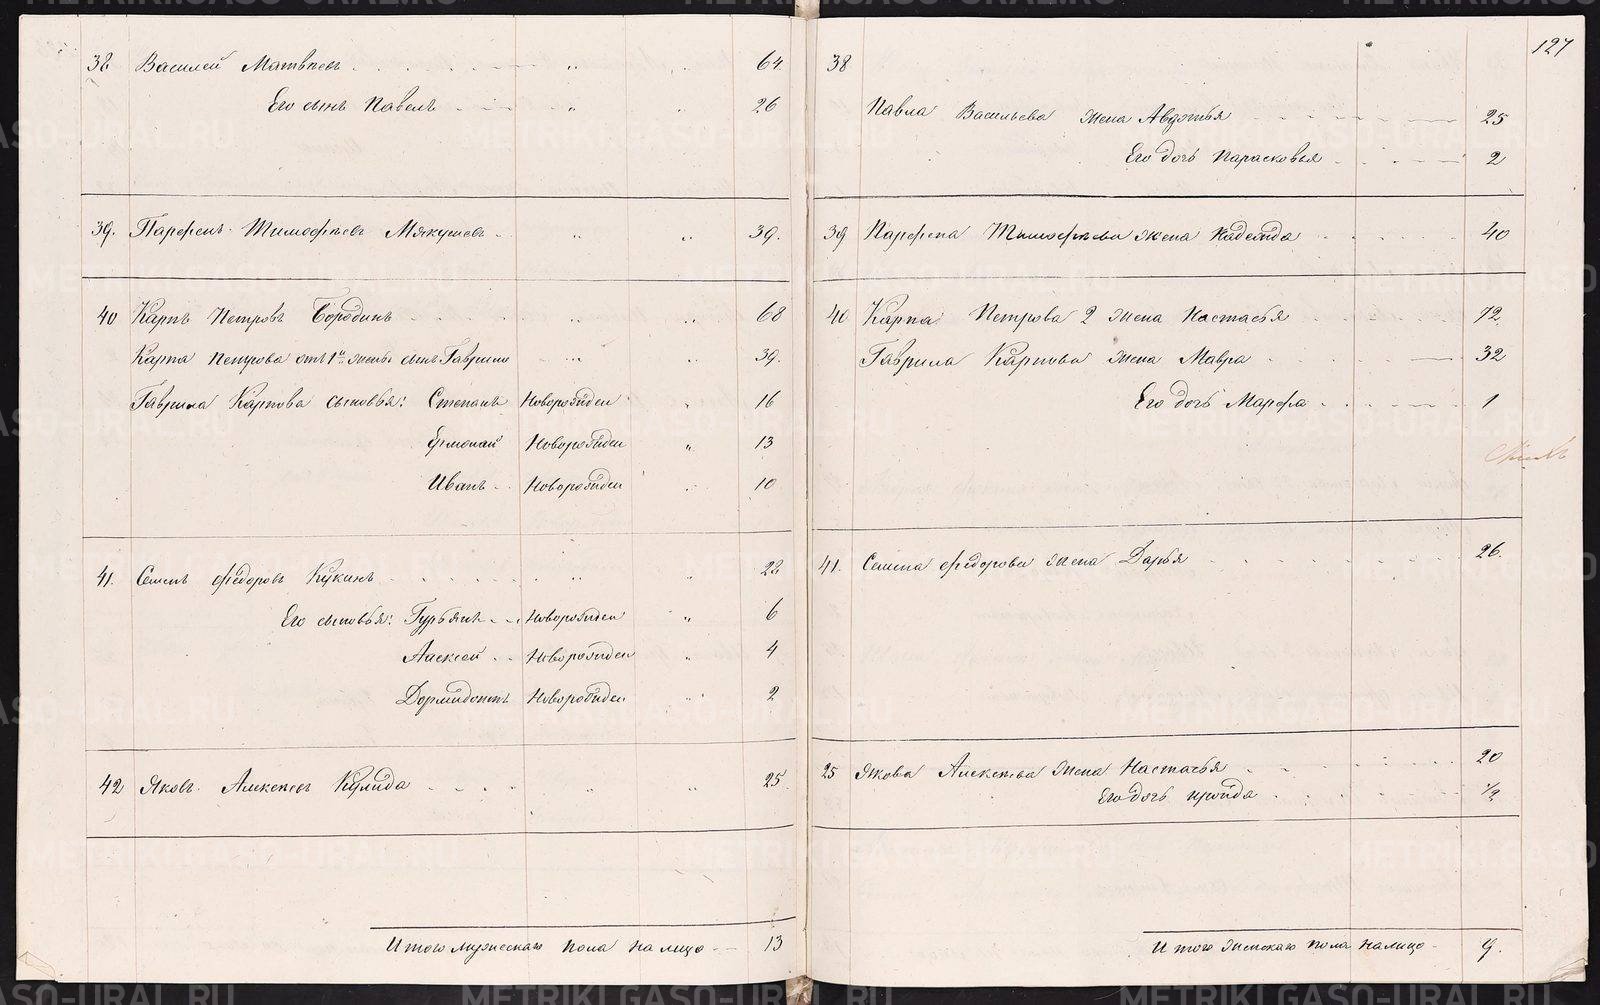 127
38 Василей Матвеевъ 64.
Его сынъ Павелъ 26
39. Парфенъ Тимофѣевъ Мякушевъ 39.
40 Карпъ Петровъ Бородинъ 68
Карпа Петрова отъ 1й жены сынъ Гаврило 39.
Гаврила Карпова сыновья: Степанъ Новорожден 16
Ермолай Новорожден 13
Иванъ Новорожден 10
41. Семенъ Федоровъ Кукинъ 22
Его сыновья: Гурьянъ Новорожден 6
Алексей Новорожден 4
Дормидонтъ Новорожден 2
42 Яковъ Алексеевъ 25
Итого мужескаго пола на лицо 13
38
Павла Васильева жена Авдотья 25
Его дочь Парасковья 2
39 Парфена Тимофѣева жена Надежда 40
40 Карпа Петрова 2 жена Настасья 72.
Гаврила Карпова жена Мавра 32
Его дочь Марфа 1
41. Семена Федорова жена Дарья 26.
25 Якова Алексѣева жена Настасья 20
Его дочь 1/2
Итого женскаго пола на лицо 9.
METRIKI.GASO-URAL.RU